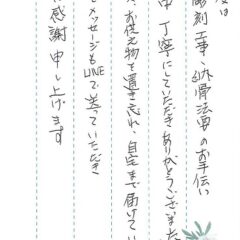 度は
彫刻工事、納骨法要のお手伝い
中 丁寧にしていただきありがとうございました
お供え物を置き忘れ、自宅まで届けてい
メッセージもLINEで送っていただき
感謝申し上げます